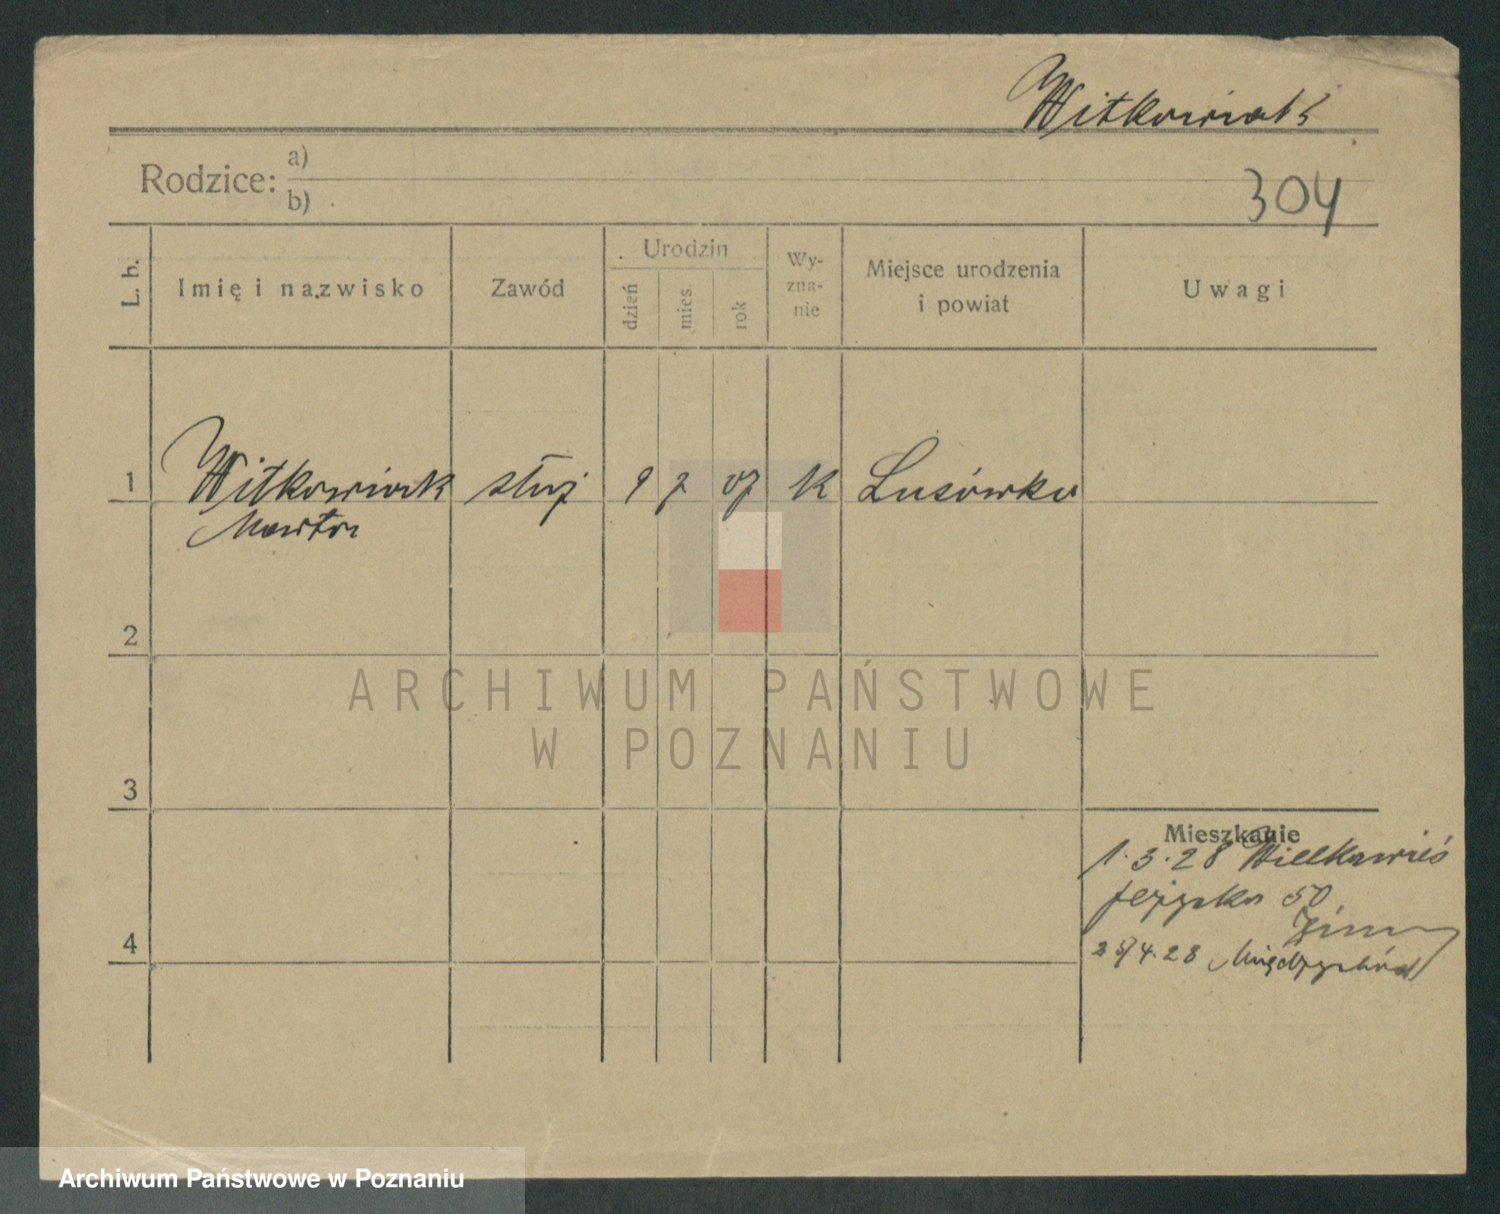 Witkowiak
Rodzice: a)
b)
304
L. b.
Imię i nazwisko
Zawód
Urodzin
dzień
mies.
rok
Wy-
zna-
nie
Miejsce urodzenia
i powiat
Uwagi
1 Witkowiak służ 9 7 07 K Lusówko
Marta
2
3
4
ARCHIWUM PAŃSTWOWE
W POZNANIU
Mieszkanie
1.3.28
50
4.28 Międzychód
Archiwum Państwowe w Poznaniu